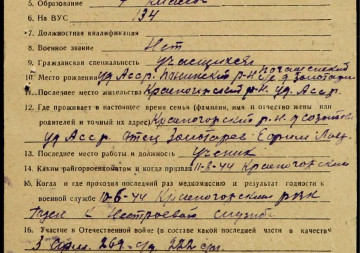 5. Образование 4 класса
6. На ВУС 134
7. Должностная квалификация
8. Военное звание Нет
9. Гражданская специальность учащийся
10. Место рождения Уд. Асср.
11. Последнее место жительства Красногорский р-н. Уд. Асср.
12. Где проживает в настоящее время семья (фамилия, имя и отчество жены или
родителей и точный их адрес) Красногорский р-н.
Уд Асср. отец Золотарев Ефрем
13. Последнее место работы и должность Ученик
14. Каким райгорвоенкоматом и когда призван 11-8-44 Красногорским
15. Когда и где проходил последний раз медкомиссию и результат годности к
военной службе 10-6-44 Красногорским рвк
Годен к Нестроевой службе
16. Участие в Отечественной войне (в составе какой последней части в качестве